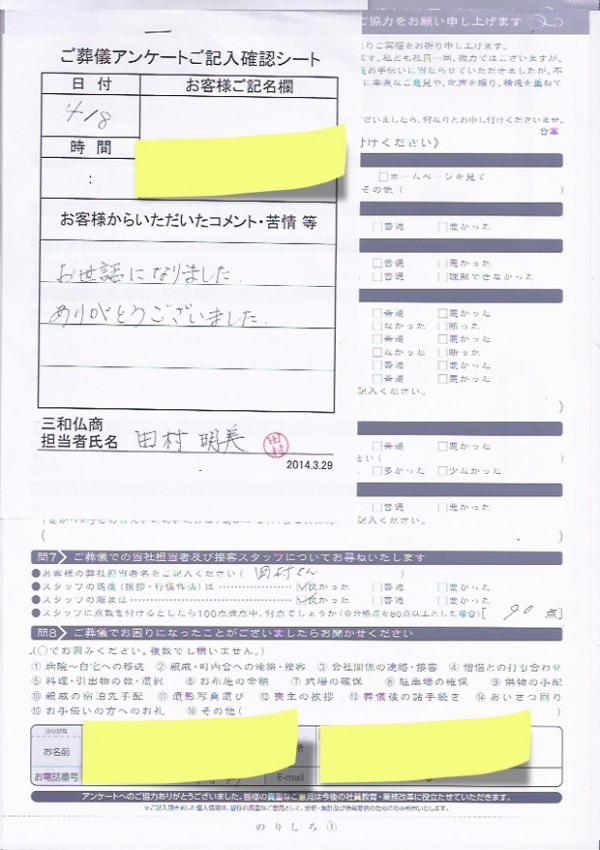 ご葬儀アンケートご記入確認シート
日付
お客様ご記名欄
4/8
時間
:
お客様からいただいたコメント・苦情 等
お世話になりました.
ありがとうございました.
三和仏商
担当者氏名 田村 明美 田村
2014.3.29
ご協力をお願い申し上げます
りご冥福をお祈り申し上げます。
ございましたら、何なりとお申し付けくださいませ。
合掌
付けください》
□ホームページを見て
その他（ ）
□普通 □悪かった
□普通 □悪かった
□普通 □理解できなかった
□普通 □悪かった
□なかった □断った
□普通 □悪かった
□なかった □断った
□普通 □悪かった
□普通 □悪かった
記入ください。
）
□普通 □悪かった
さい（ ）
□多かった □少なかった
□普通 □悪かった
記入ください。
（ ）
問7 ご葬儀での当社担当者及び接客スタッフについてお尋ねいたします
●お客様の弊社担当者名をご記入ください（ 田村さん ）
●スタッフの態度（挨拶・行儀作法）は ☑良かった □普通 □悪かった
●スタッフの服装は ☑良かった □普通 □悪かった
●スタッフに点数を付けるとしたら100点満点中、何点でしょうか（※合格点を80点以上とした場合）[ 90 点]
問8 ご葬儀でお困りになったことがございましたらお聞かせください
（○でお囲みください。複数でも構いません。）
①病院〜自宅への移送 ②親戚・町内会への連絡・接客 ③会社関係の連絡・接客 ④僧侶との打ち合わせ
⑤料理・引出物の数・選択 ⑥お布施の金額 ⑦式場の確保 ⑧駐車場の確保 ⑨供物の手配
⑩親戚の宿泊先手配 ⑪遺影写真選び ⑫喪主の挨拶 ⑬葬儀後の諸手続き ⑭あいさつ回り
⑮お手伝いの方へのお礼 ⑯その他（ ）
ふりがな
お名前
所
お電話番号
E-mail
アンケートへのご協力ありがとうございました。皆様の貴重なご意見は今後の社員教育・業務改革に役立たせていただきます。
のりしろ①